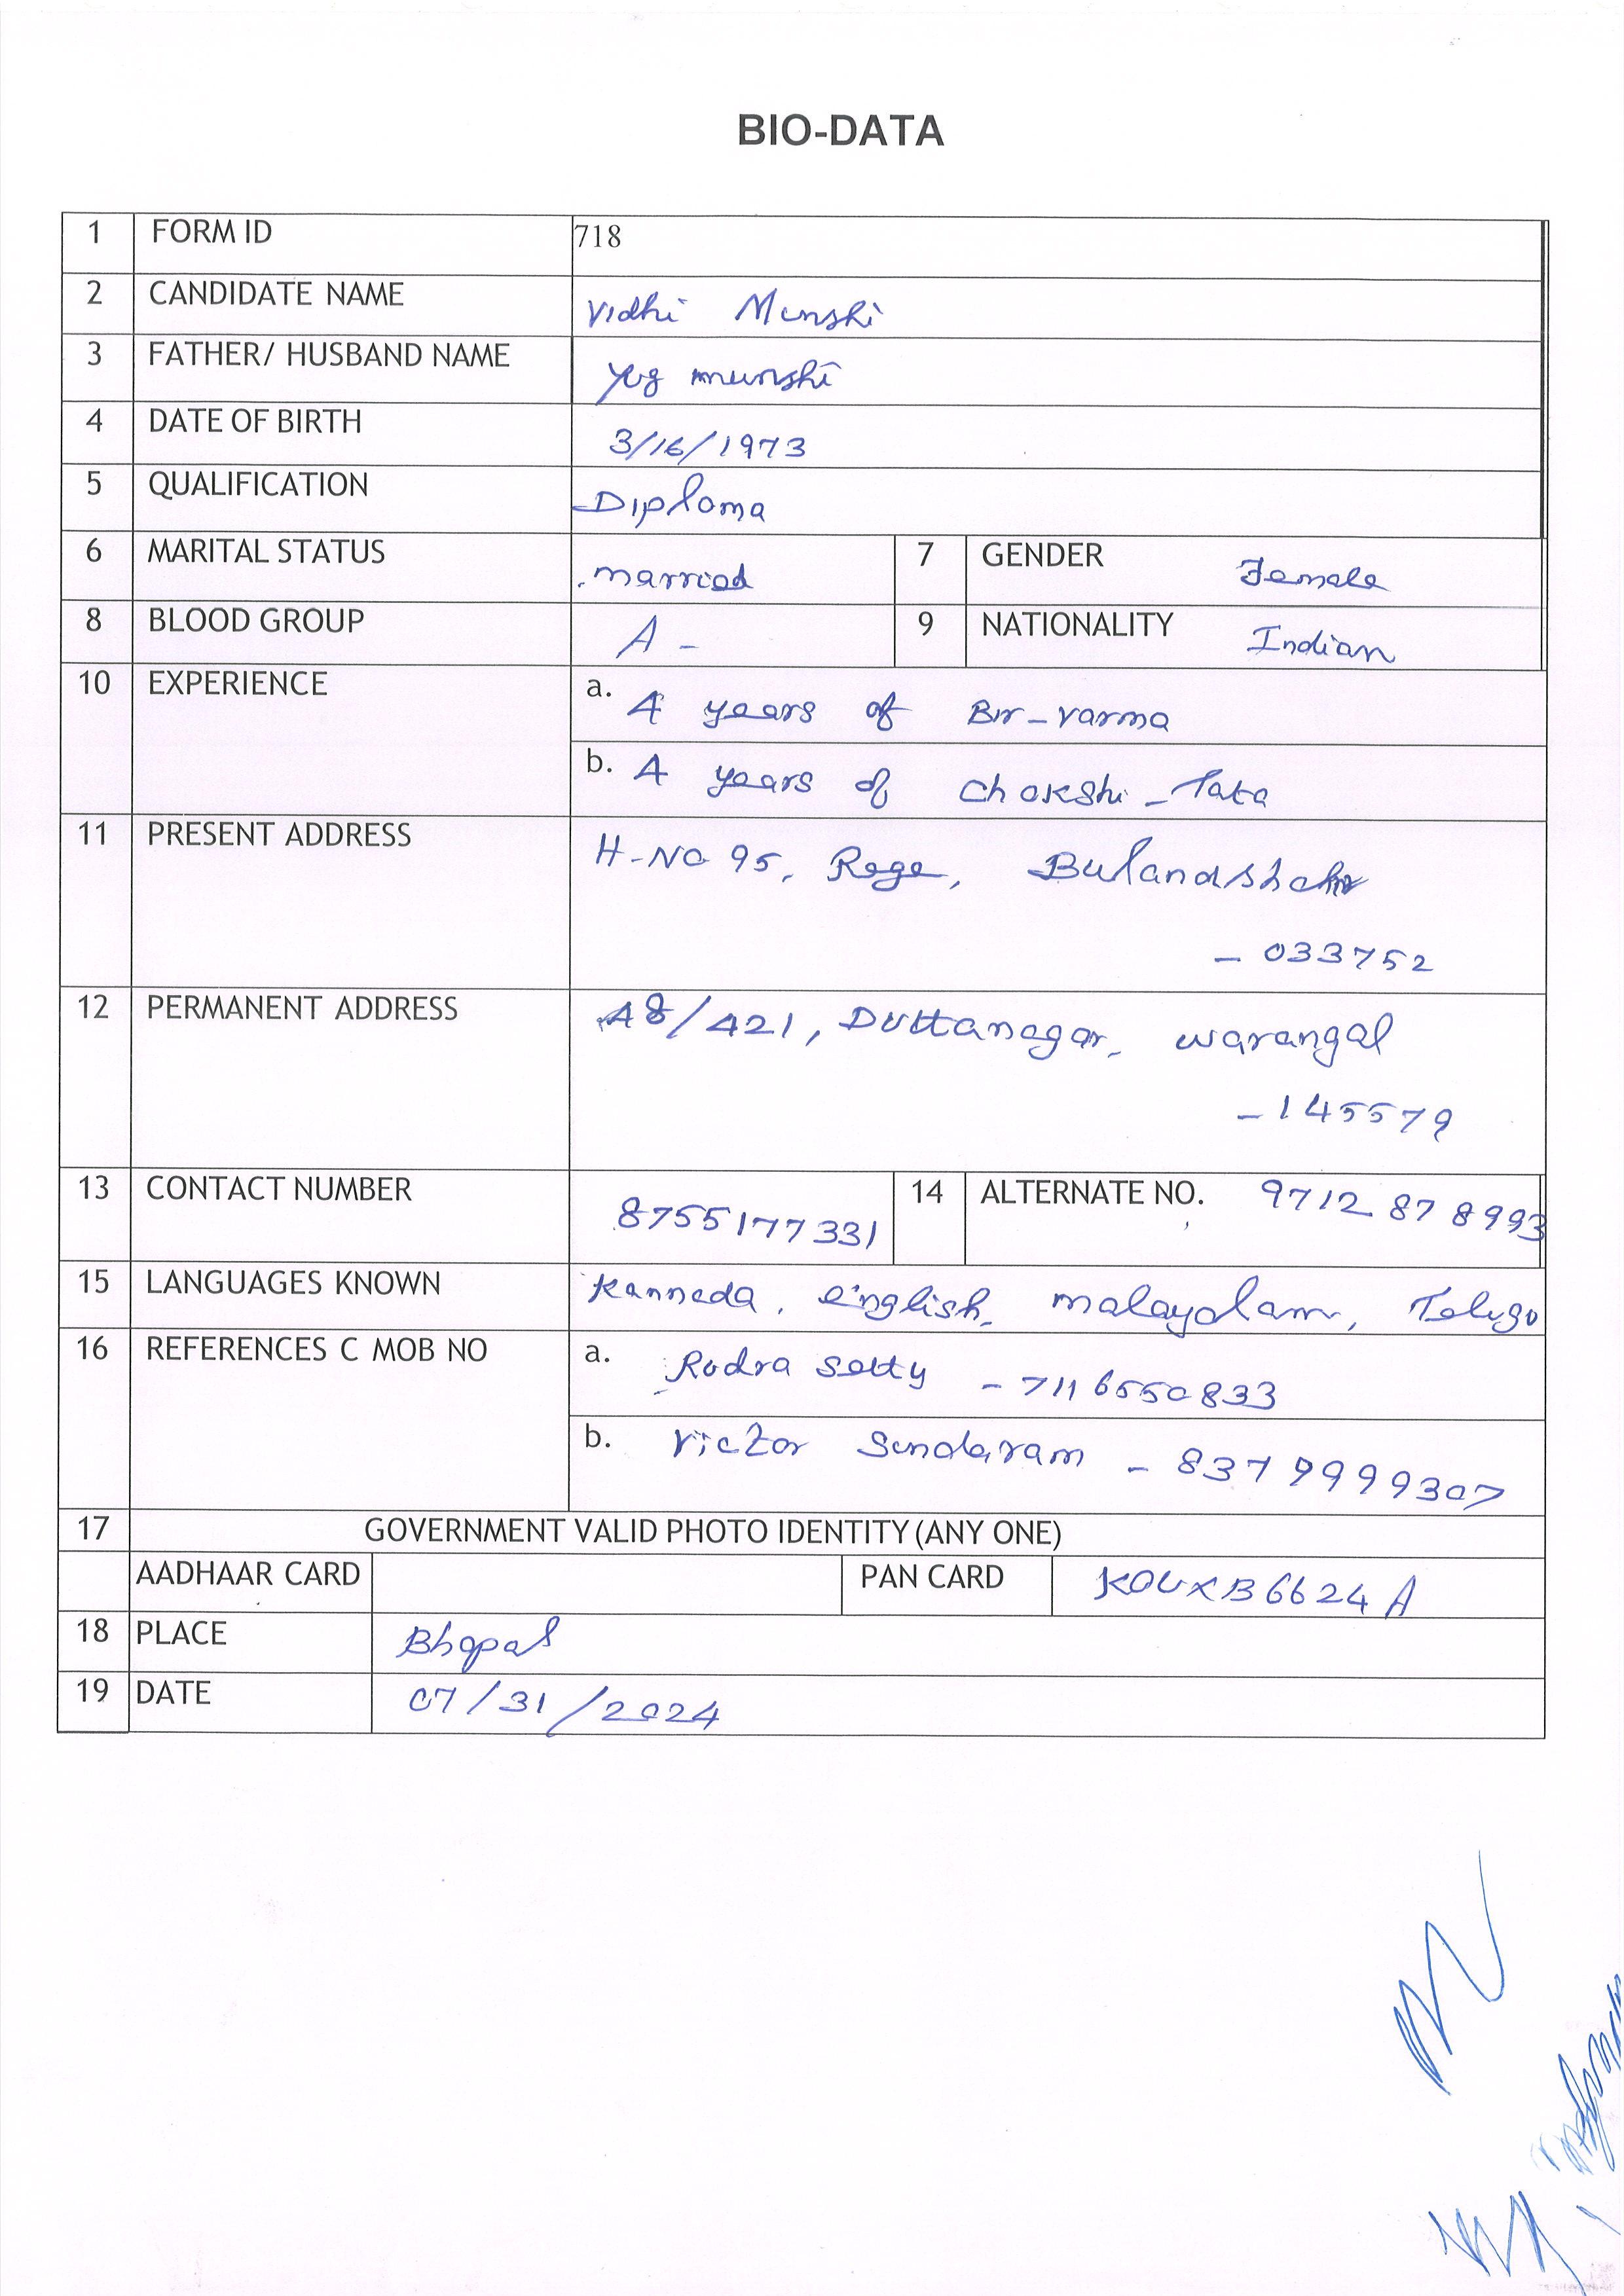 BIO-DATA
1 FORM ID 718
2 CANDIDATE NAME Vidhi Munshi
3 FATHER/ HUSBAND NAME Yug munshi
4 DATE OF BIRTH 3/16/1973
5 QUALIFICATION Diploma
6 MARITAL STATUS married 7 GENDER Female
8 BLOOD GROUP A - 9 NATIONALITY Indian
10 EXPERIENCE a. 4 years of Bir-varma
b. 4 years of Chokshi-Tata
11 PRESENT ADDRESS H-No 95, Rege, Bulandshahr
- 033752
12 PERMANENT ADDRESS 48/421, Duttanagar, warangal
- 145579
13 CONTACT NUMBER 8755177331 14 ALTERNATE NO. 9712878993
15 LANGUAGES KNOWN Kannada, english, malayalam, Telugu
16 REFERENCES C MOB NO a. Rudra Setty - 7116550833
b. Victor Sundaram - 8379999307
17 GOVERNMENT VALID PHOTO IDENTITY (ANY ONE)
AADHAAR CARD PAN CARD KOUXB6624A
18 PLACE Bhopal
19 DATE 07/31/2024